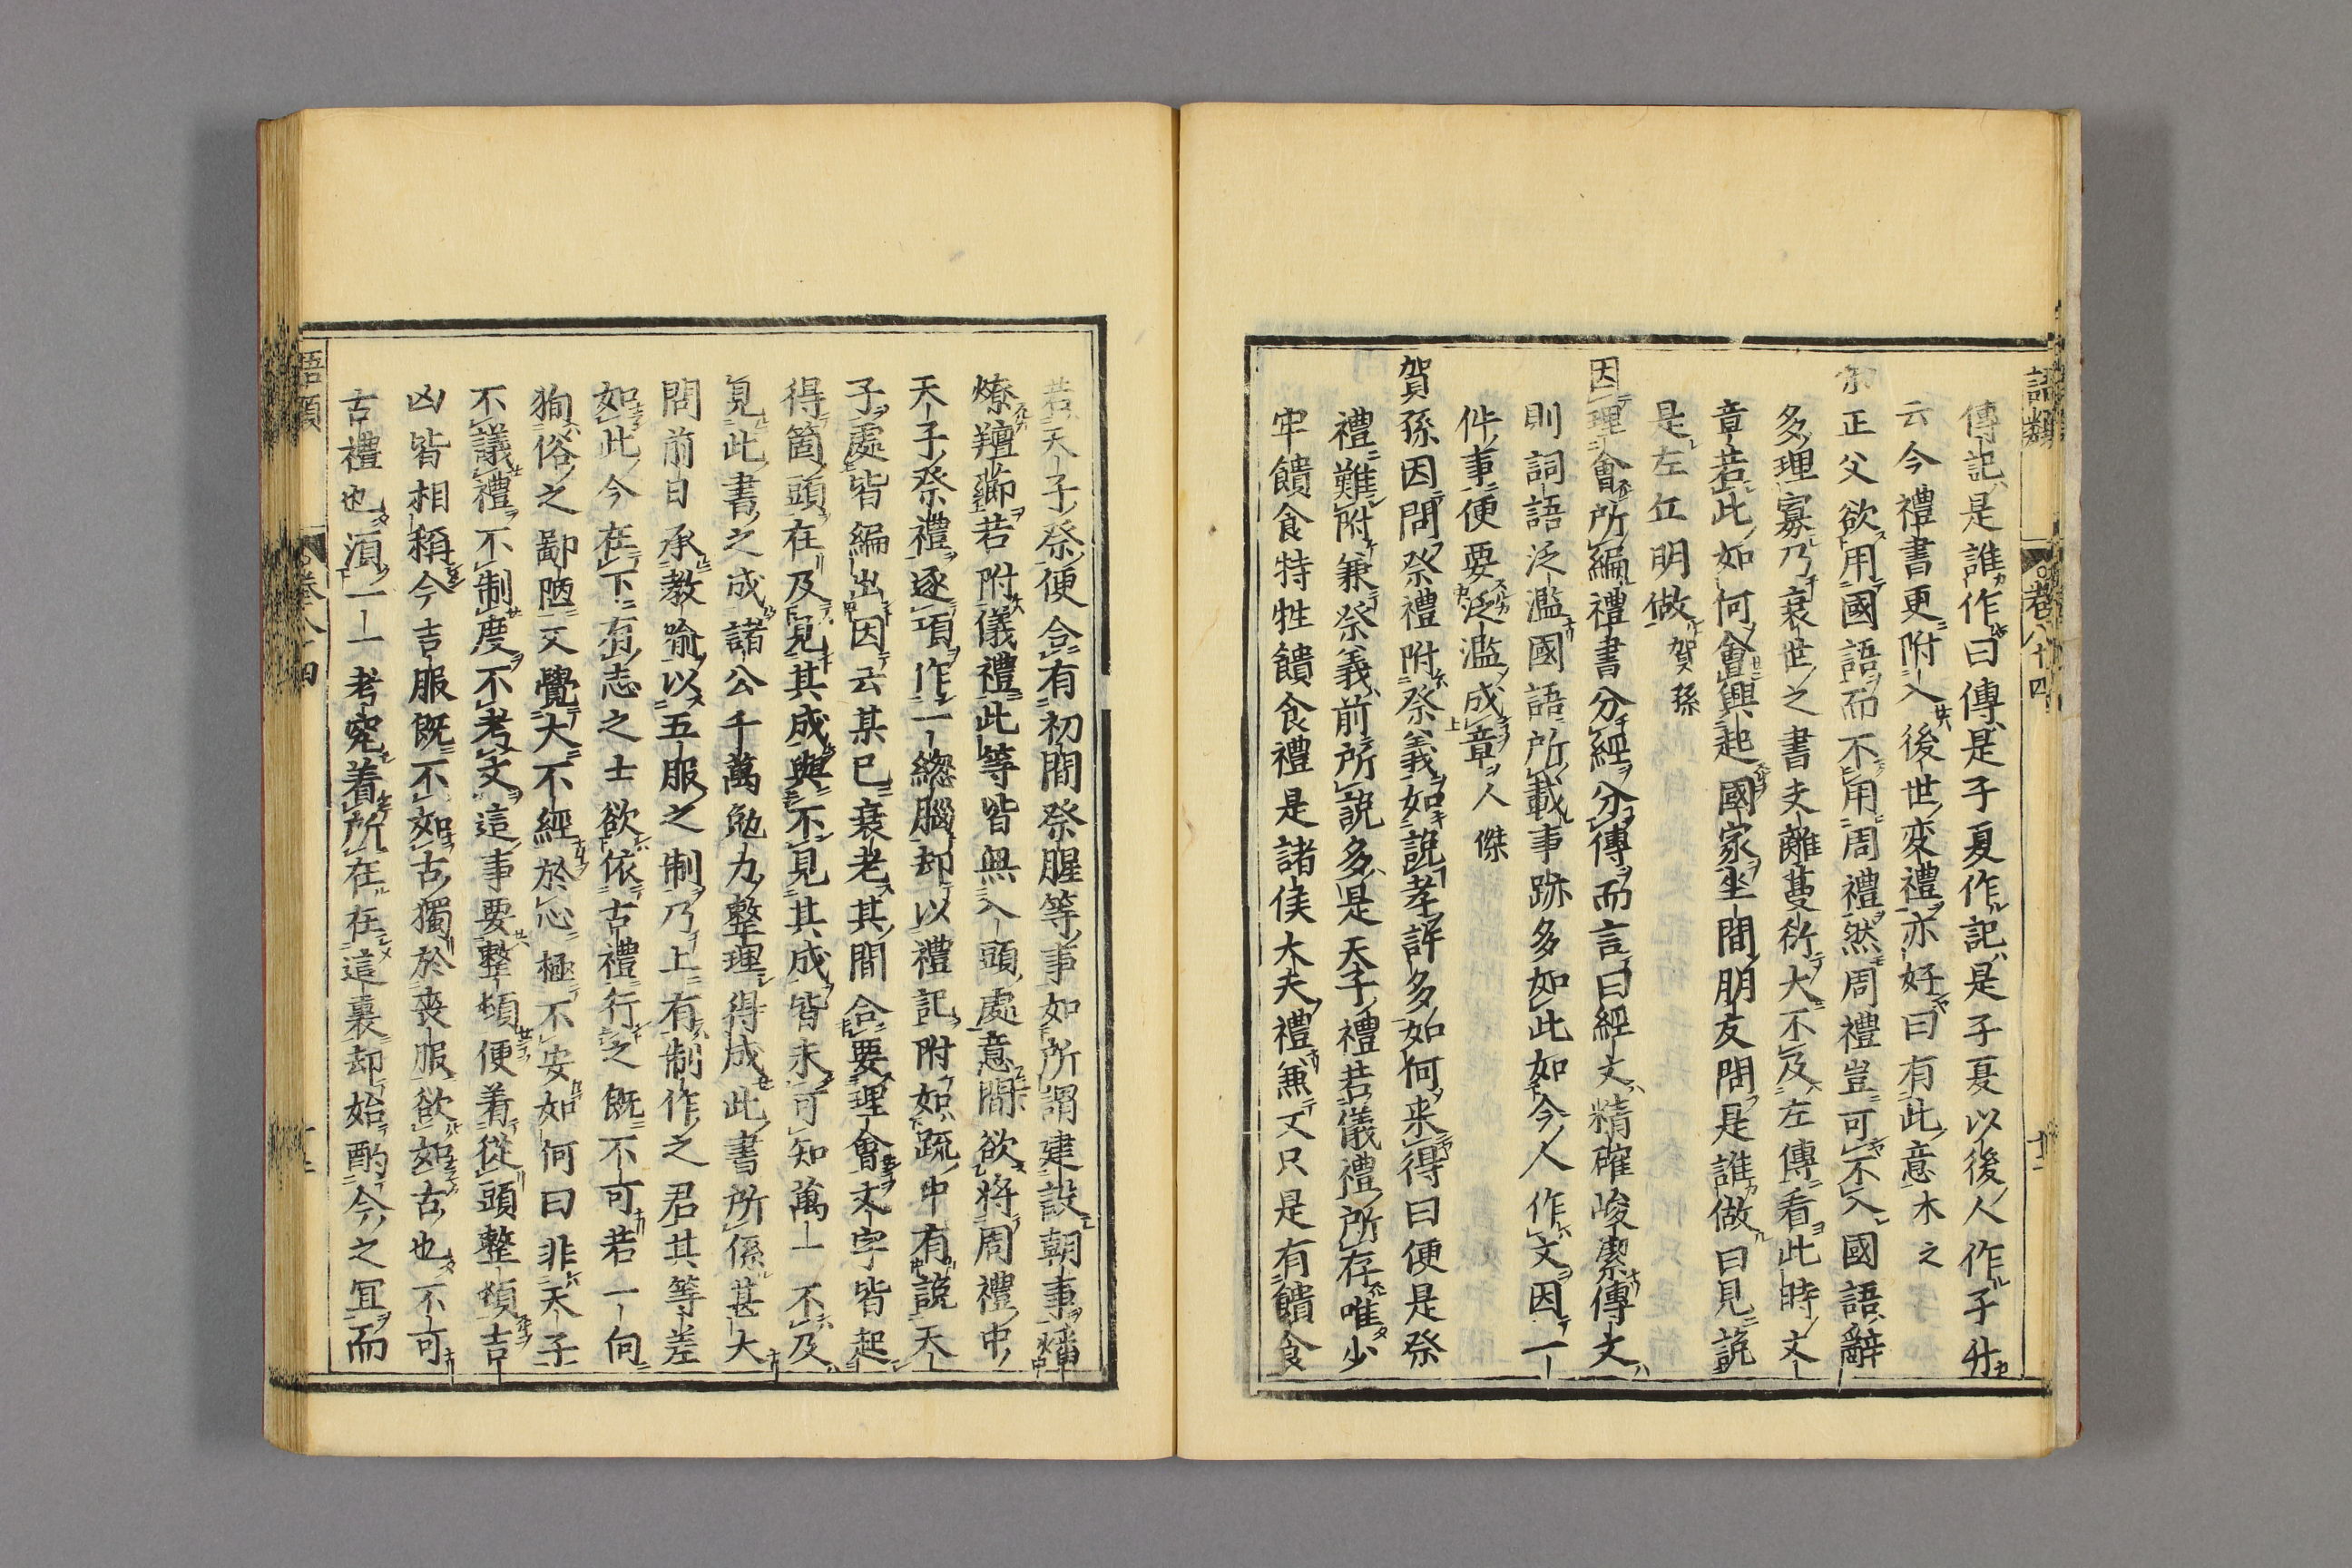 語類
卷八十四
十二
傳記是誰作曰傳是子夏作記是子夏以後人作子升
云今禮書更附入後世変禮亦好曰有此意木之
余正父欲用國語而不用周禮然周禮豈可不入國語辭
多理寡乃衰世之書支離蔓衍大不及左傳看此時文
章若此如何會興起國家坐間朋友問是誰做曰見說
是左丘明做賀孫
因理會所編禮書分經分傳而言曰經文精確峻潔傳文
則詞語泛濫國語所載事跡多如此如今人作文因一
件事便要泛濫成章人傑
賀孫因問祭禮附祭義如說孝許多如何来得曰便是祭
禮難附兼祭義前所說多是天子禮若儀禮所存唯少
牢饋食特牲饋食禮是諸侯大夫禮兼又只是有饋食
若天子祭便合有初間祭腥等事如所謂建設朝事燔
燎羶薌若附儀禮此等皆無入頭處意間欲將周禮中
天子祭禮逐項作一緫腦却以禮記附如疏中有說天
子處皆編出因云某已衰老其間合要理會文字皆起
得箇頭在及見其成與不見其成皆未可知萬一不及
見此書之成諸公千萬勉力整理得成此書所係甚大
問前日承教喻以五服之制乃上有制作之君其等差
如此今在下有志之士欲依古禮行之既不可若一向
狥俗之鄙陋又覺大不經於心極不安如何曰非天子
不議禮不制度不考文這事要整頓便着從頭整頓吉
凶皆相稱今吉服既不如古獨於喪服欲如古也不可
古禮也須一一考究着所在在這裏却始酌今之冝而
語類
卷八十四